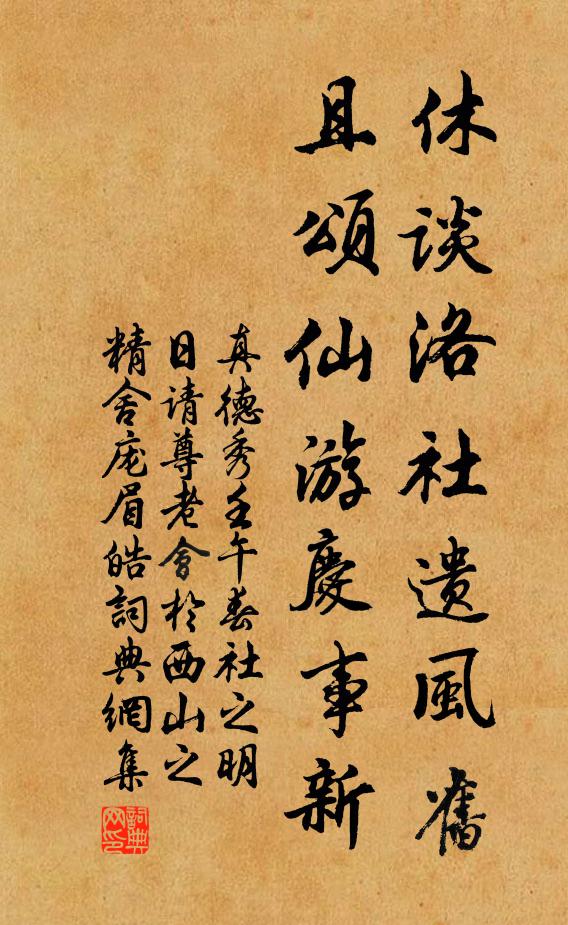 休谈洛社遗風舊
且頌仙游慶事新
真德秀壬午春社之明
日请尊老會於西山之
精舍庞眉皓詞典網集
詞典
网印